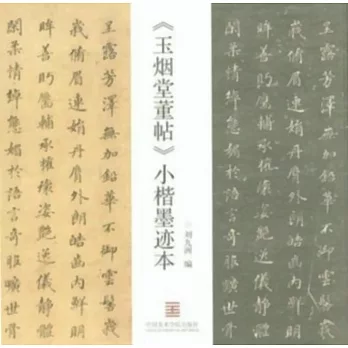 呈露芳澤無加鉛華不御雲髻峩
峩脩眉連娟丹脣外朗皓齒內鮮明
眸善眄靨輔承權瓌姿艷逸儀靜體
閑柔情綽態媚於語言奇服曠世骨
《玉烟堂董帖》小楷墨迹本
刘九洲 编
中国美术学院出版社
呈露芳澤無加鉛華不御雲髻峩
峩脩眉連娟丹脣外朗皓齒內鮮明
眸善眄靨輔承權瓌姿艷逸儀靜體
閑柔情綽態媚於語言奇服曠世骨